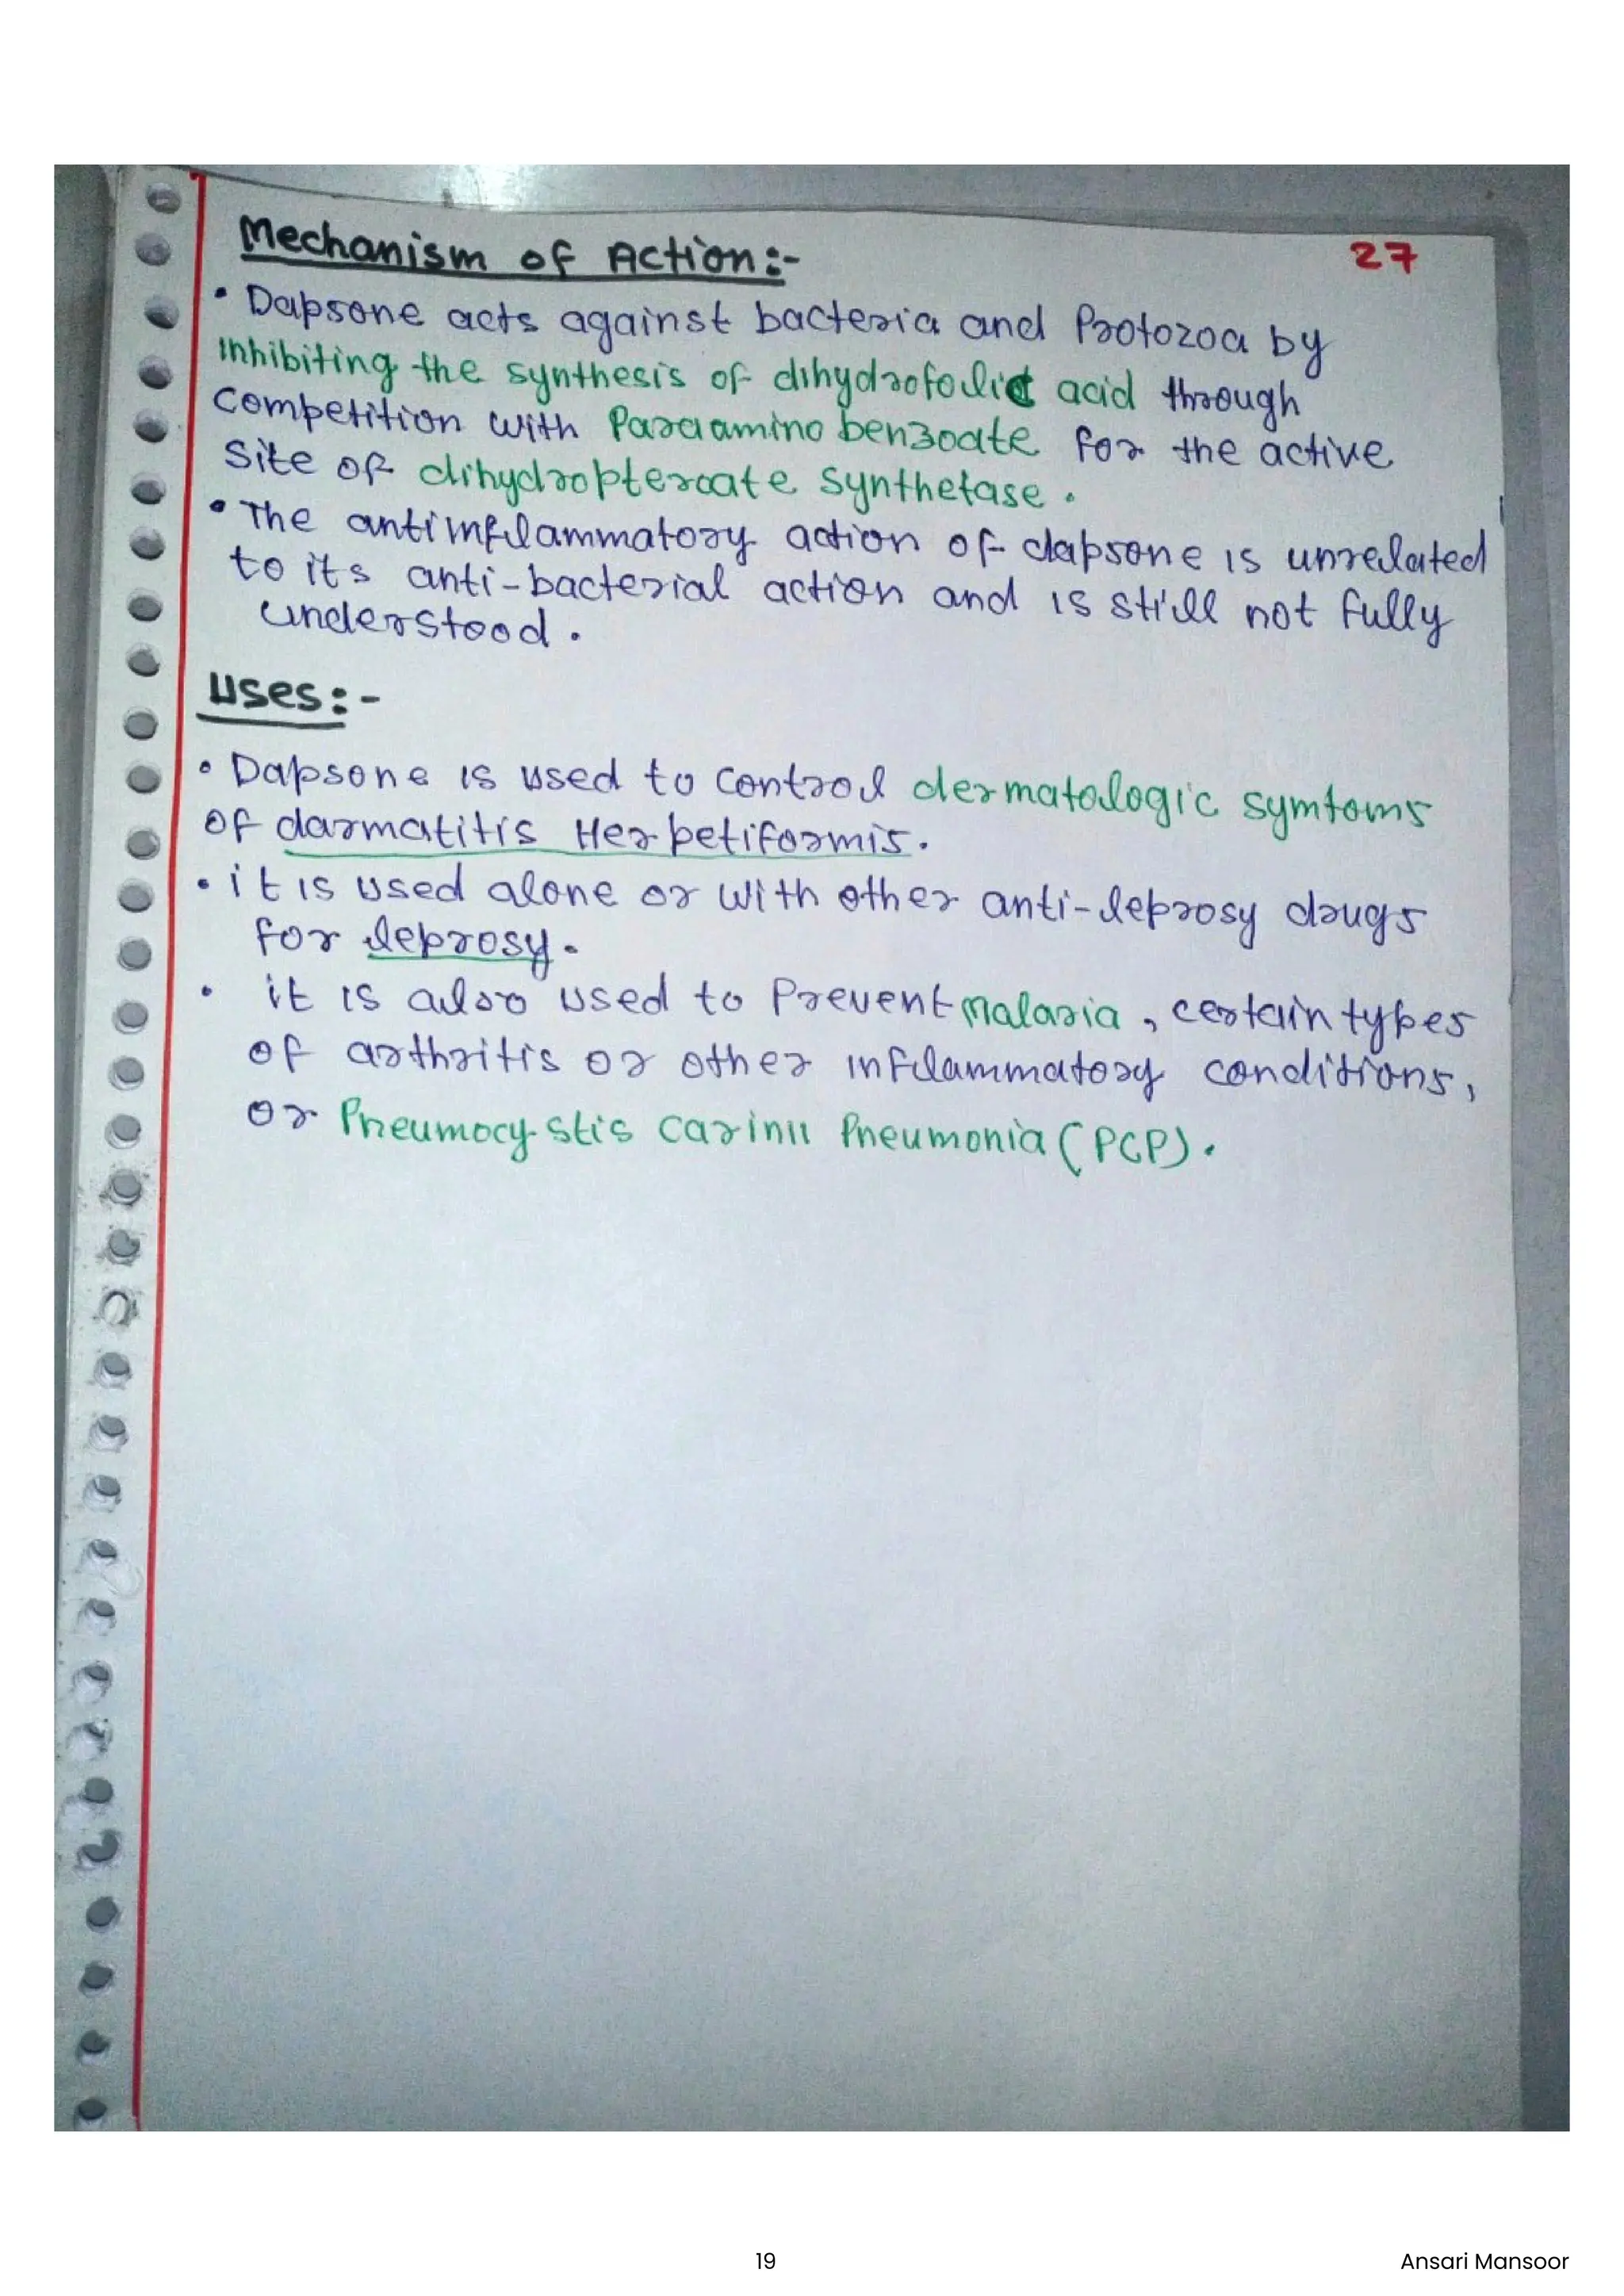 Mechanism of Action:-
27
• Dapsone acts against bacteria and Protozoa by
Inhibiting the synthesis of dihydrofolic acid through
Competition with Paraamino benzoate for the active
Site of dihydropteroate Synthetase.
• The antiinflammatory action of dapsone is unrelated
to its anti-bacterial action and is still not fully
understood.
Uses:-
• Dapsone is used to control dermatologic symtoms
of darmatitis Herpetiformis.
• it is used alone or with other anti-leprosy drugs
for leprosy.
• it is also used to Prevent Malaria, certain types
of arthritis or other inflammatory conditions,
or Pneumocystis carinii Pneumonia (PCP).
19
Ansari Mansoor